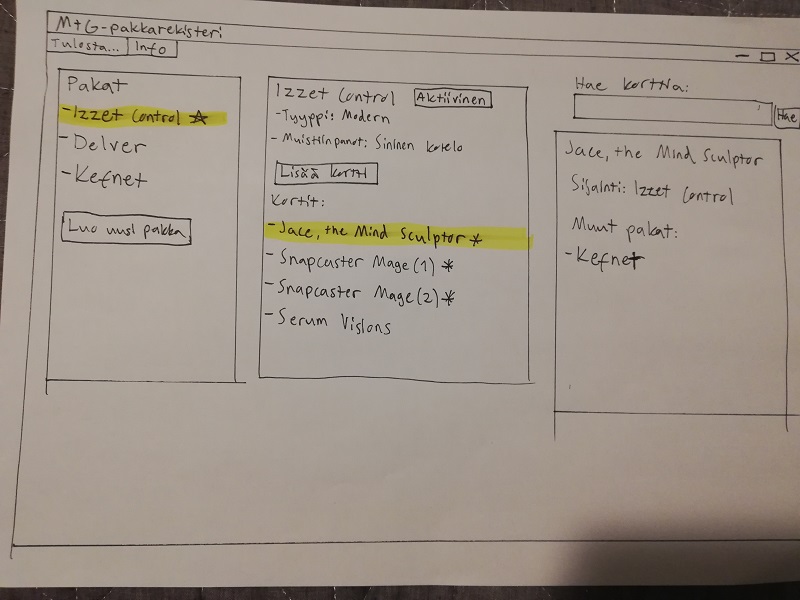 MtG-pakkarekisteri
Tulosta... Info
Pakat
-Izzet Control
-Delver
-Kefnet
Luo uusi pakka
Izzet Control Aktiivinen
-Tyyppi: Modern
-Muistiinpanot: Sininen kotelo
Lisää kortti
Kortit:
-Jace, the Mind Sculptor *
-Snapcaster Mage (1) *
-Snapcaster Mage (2) *
-Serum Visions
Hae korttia:
Hae
Jace, the Mind Sculptor
Sijainti: Izzet Control
Muut pakat:
-Kefnet